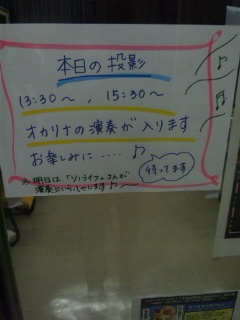 本日の投影
13:30〜 , 15:30〜
オカリナの演奏が入ります
お楽しみに・・・・♪
待ってます
※明日は、「ソ・ライフ」さんが
演奏にいらっしゃいます♪〜